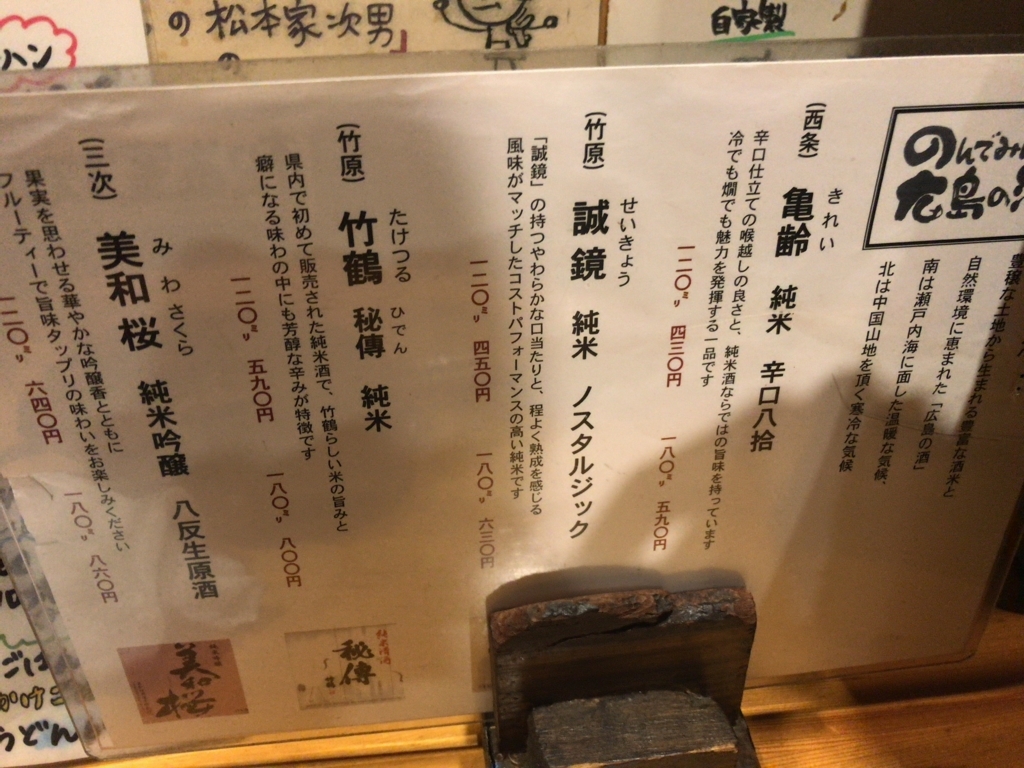 のんでみ
広島の
豊穣な土地から生まれる豊富な酒米と
自然環境に恵まれた「広島の酒」
南は瀬戸内海に面した温暖な気候、
北は中国山地を頂く寒冷な気候
(西条) 亀齢 純米 辛口八拾
きれい
辛口仕立ての喉越しの良さと、純米酒ならではの旨味を持っています
冷でも燗でも魅力を発揮する一品です
一二〇㍉ 四三〇円 一八〇㍉ 五九〇円
(竹原) 誠鏡 純米 ノスタルジック
せいきょう
「誠鏡」の持つやわらかな口当たりと、程よく熟成を感じる
風味がマッチしたコストパフォーマンスの高い純米です
一二〇㍉ 四五〇円 一八〇㍉ 六三〇円
(竹原) 竹鶴 秘傳 純米
たけつる ひでん
県内で初めて販売された純米酒で、竹鶴らしい米の旨みと
癖になる味わの中にも芳醇な辛みが特徴です
一二〇㍉ 五九〇円 一八〇㍉ 八〇〇円
(三次) 美和桜 純米吟醸 八反生原酒
みわさくら
果実を思わせる華やかな吟醸香とともに
フルーティーで旨味タップリの味わいをお楽しみください
一二〇㍉ 六四〇円 一八〇㍉ 八六〇円
純米清酒
秘傳
美和桜
の 松本家次男」
の
自家製
ハン
ごは
かけご
うどん